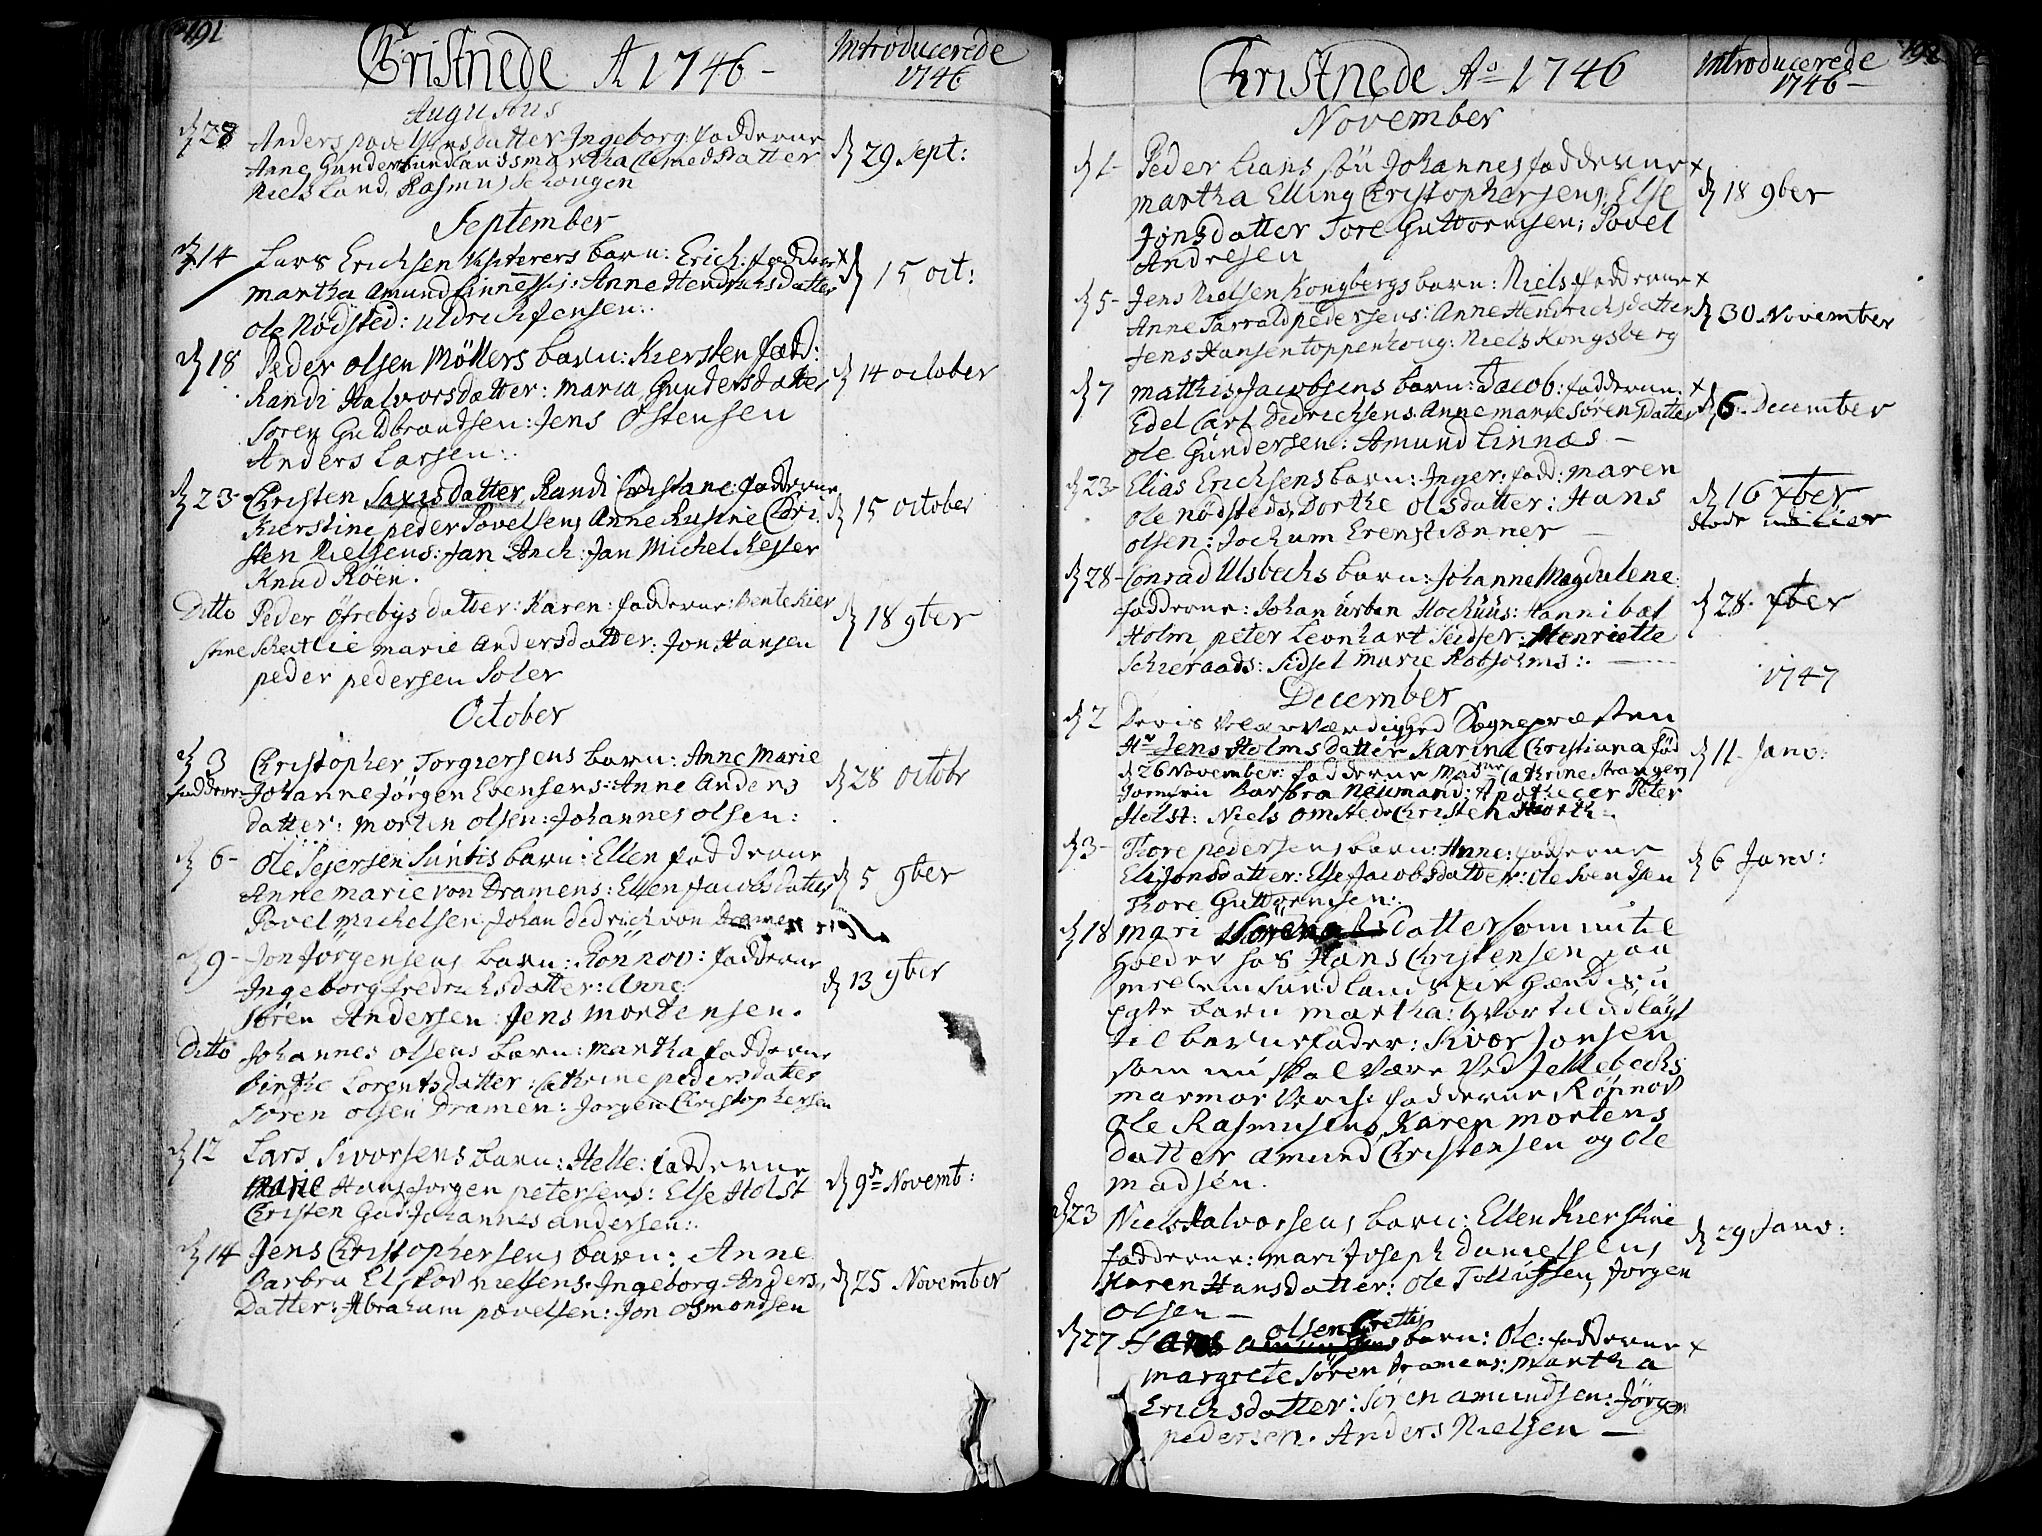 191
Christnede A 1746 -
Introducerede
1746
Augustus
28 Anders povelsens datter Ingeborg: fadderne
Anne Gunder
Niels Lund, Rasmus
29 Sept:
September
14 Lars Erichsen barn: Erich: fadder x
martha Amund Linnes: Anne Hendrichsdatter
ole Nødsted: uldrich Jensen:.
15 oct:
18 Peder olsen Møllers barn: Kiersten fadd:
Randi Halvorsdatter: maria Gundersdatter
Søren Guldbrandsen: Jens Østensen
Anders Larsen:.
14 october
23- Christen Saxisdatter Randi fadderne
Kierstine peder Povelsens Anne Chri
sten Nielsens: Jan Anch: Jan Michel
Knud Röen.
15 october
Ditto Peder Öfrebys datter: Karen: fadderne: Bente Kier
stine marie Andersdatter: Jon Hansen
peder pedersen Soler
18 9ber
October
3 Christopher Torgiersens barn: Anne Marie
fadderne Johanne Jörgen Evensens: Anne Anders
datter: morten olsen: Johannes olsen:
28 Octobr
6- Ole Sejersen Suntis barn: Ellen fadderne
Anne marie von Dramens: Ellen Jacobsdatter
Povel michelsen: Johan didrich von
5 9ber
9- Jon Jörgensens barn: Rönnov: fadderne
Ingeborg fredrichsdatter: Anne
Søren Andersen: Jens mortensen.
13 9ber
Ditto Johannes olsens barn: martha fadderne
birthe Lorentsdatter: Cathrine pedersdatter
Søren olsen Dramen: Jorgen Christophersen
12 Lars Sivorsens barn: Helle: fadderne
marie Hans Jorgen petersens: Else Holst
Christen Johannes andersen:.
9de Novemt:
14 Jens Christophersens barn: Anne
Barbra nielsens: Ingeborg Anders
Datter: Abraham povelsen: Jon osmondsen
25 November
192
Christnede Ao 1746
Introducerede
1746 -
November
1- Peder Lians søn Johannes fadderne x
martha Elling Christophersens: Else
Jonsdatter Tore Guttormsen: Povel
Andresen
18 9ber
5- Jens Nielsen Kongbergs barn: Niels fadderne x
Anne Tarrald pedersens: Anne Hendrichsdatter
Jens Hansen toppenhoug: Niels Kongsberg
30 November
7 matthis Jacobsens barn: Jacob: fadderne x
Edel Carl Didrichsens: Anne marie Sørensdatter
ole Gundersen: Amund Linnæs -
6. December
23- Elias Erichsens barn: Inger: fadd: maren
ole nødsteds Dorthe olsdatter: Hans
olsen: Jochum Erenst sønner
16 Xber
28- Conrad Ulsbechs barn: Johanne Magdalene
fadderne: Johan urban: Hannibal
Holm peter Leonhart: Henriette
Sidsel marie:.
28. Xber
1747
December
2 Deris Velærværdighed Sognepræsten
Hr Jens Holms datter Karina Christiana fød
d 26 November: fadderne Cathrine
Barbra Neumand: Apothecer Peter
Holst: Niels omsted: Christen
11 Janv:
3- Thore pedersens barn: Anne: fadderne
Eli Jonsdatter: Else Jacobsdatter: ole Svendsen
Thore Guttormsen:.
6 Janv:
18 mari Datter som nu til
holder hos Hans Christensen paa
mellem sundland u
Egte barn martha: hvor til udlagt
til barnefader: Sivor Jonsen
som nu skal være ved Jellebechs
marmor fadderne, Rønnov
Ole Rasmusens, Karen mortens
datter Amund Christensen og ole
madsen.
23 Niels Halvorsens barn: Ellen Kierstine
fadderne: mari Joseph danielsens
Karen Hansdatter: ole Tollufsen, Jorgen
olsen -
29 Janv:
27 Hans olsen barn: Ole: fadderne x
margrete Søren Dramens: martha
Erichsdatter: Søren amundsen: Jörgen
pedersen. Anders Nielsen -